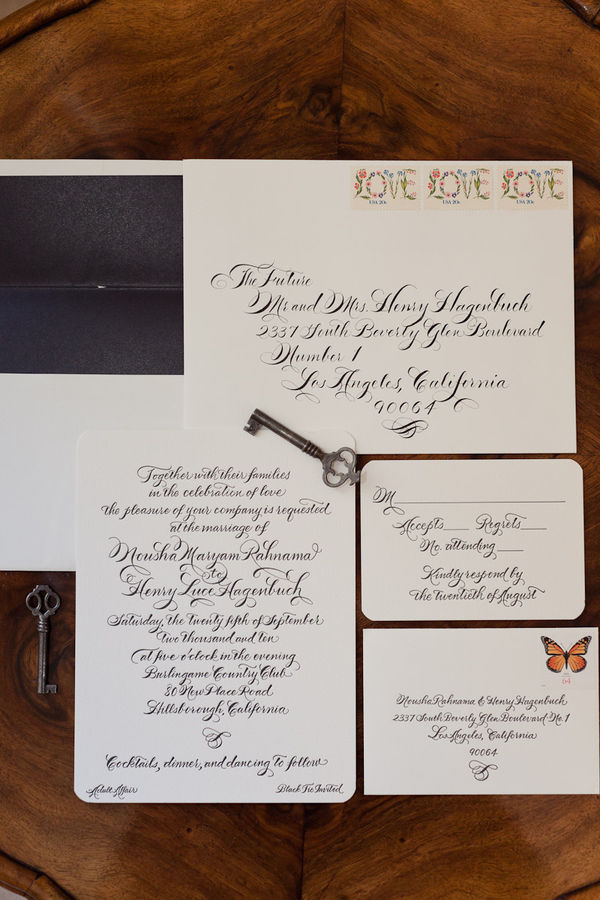 LOVE LOVE LOVE
USA 20c USA 20c USA 20c
The Future
Mr and Mrs. Henry Hagenbuch
2337 South Beverly Glen Boulevard
Number 1
Los Angeles, California
90064
Together with their families
in the celebration of love
the pleasure of your company is requested
at the marriage of
Nousha Maryam Rahnama
to
Henry Luce Hagenbuch
Saturday, the twenty fifth of September
two thousand and ten
at five o'clock in the evening
Burlingame Country Club
80 New Place Road
Hillsborough, California
Cocktails, dinner, and dancing to follow
Adult Affair
Black Tie Invited
M
Accepts Regrets
No. attending
Kindly respond by
the twentieth of August
64
Nousha Rahnama & Henry Hagenbuch
2337 South Beverly Glen Boulevard No. 1
Los Angeles, California
90064